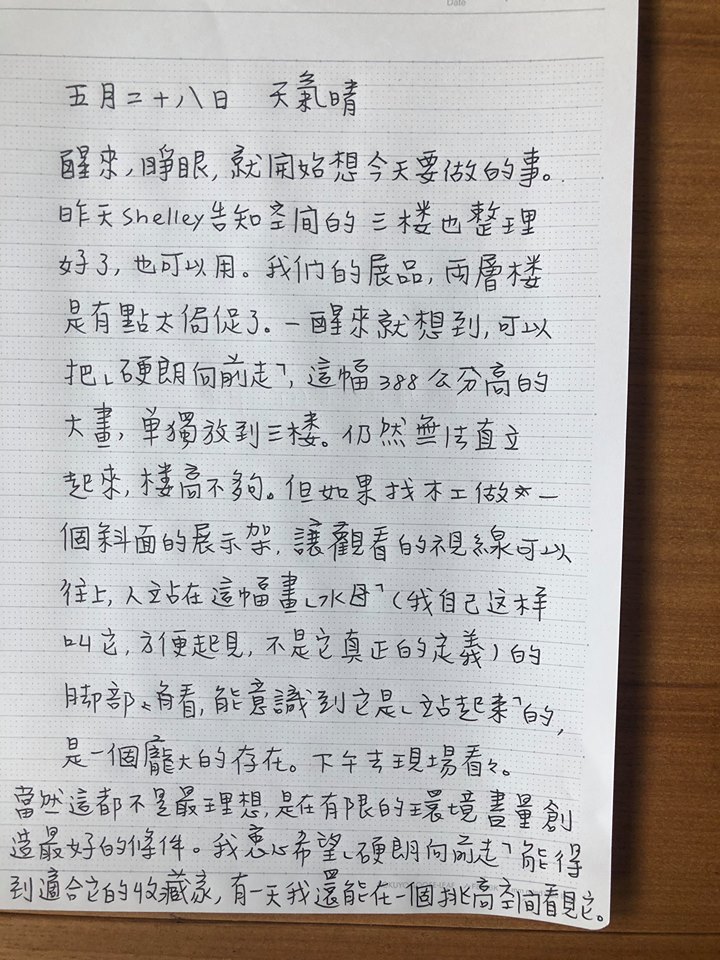 Date
五月二十八日　天氣晴
醒來,睜眼,就開始想今天要做的事。
昨天Shelley告知空间的三楼也整理
好了,也可以用。我们的展品,两層楼
是有點太侷促了。一醒來就想到,可以
把「硬朗向前走」,這幅388公分高的
大畫,单獨放到三楼。仍然無法直立
起來,楼高不夠。但如果找木工做一
個斜面的展示架,讓觀看的視線可以
往上,人站在這幅畫「水母」(我自己这样
叫它,方便起見,不是它真正的定義)的
脚部看,能意識到它是「站起来」的,
是一個龐大的存在。下午去現場看々。
當然這都不是最理想,是在有限的環境盡量創
造最好的條件。我衷心希望「硬朗向前走」能得
到適合它的收藏家,有一天我還能在一個挑高空间看見它。